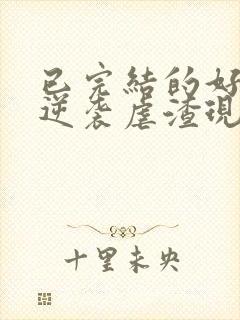 已完結的好
逆袭虐渣現
十里未央